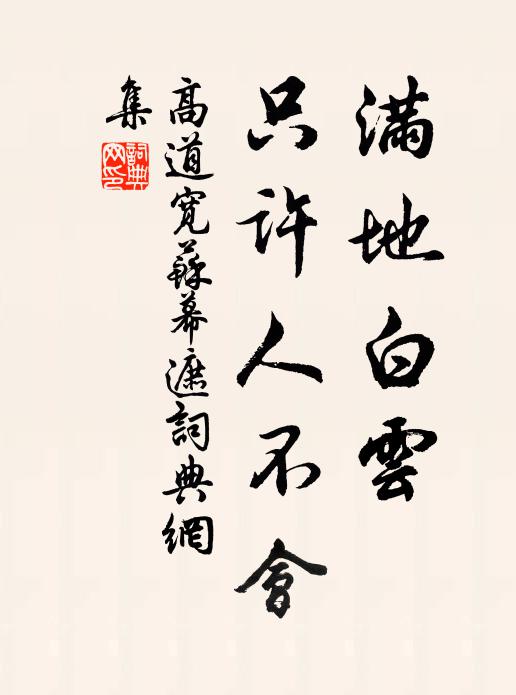 滿地白雲
只許人不會
高道寬蘇幕遮詞典網
集
詞典網印